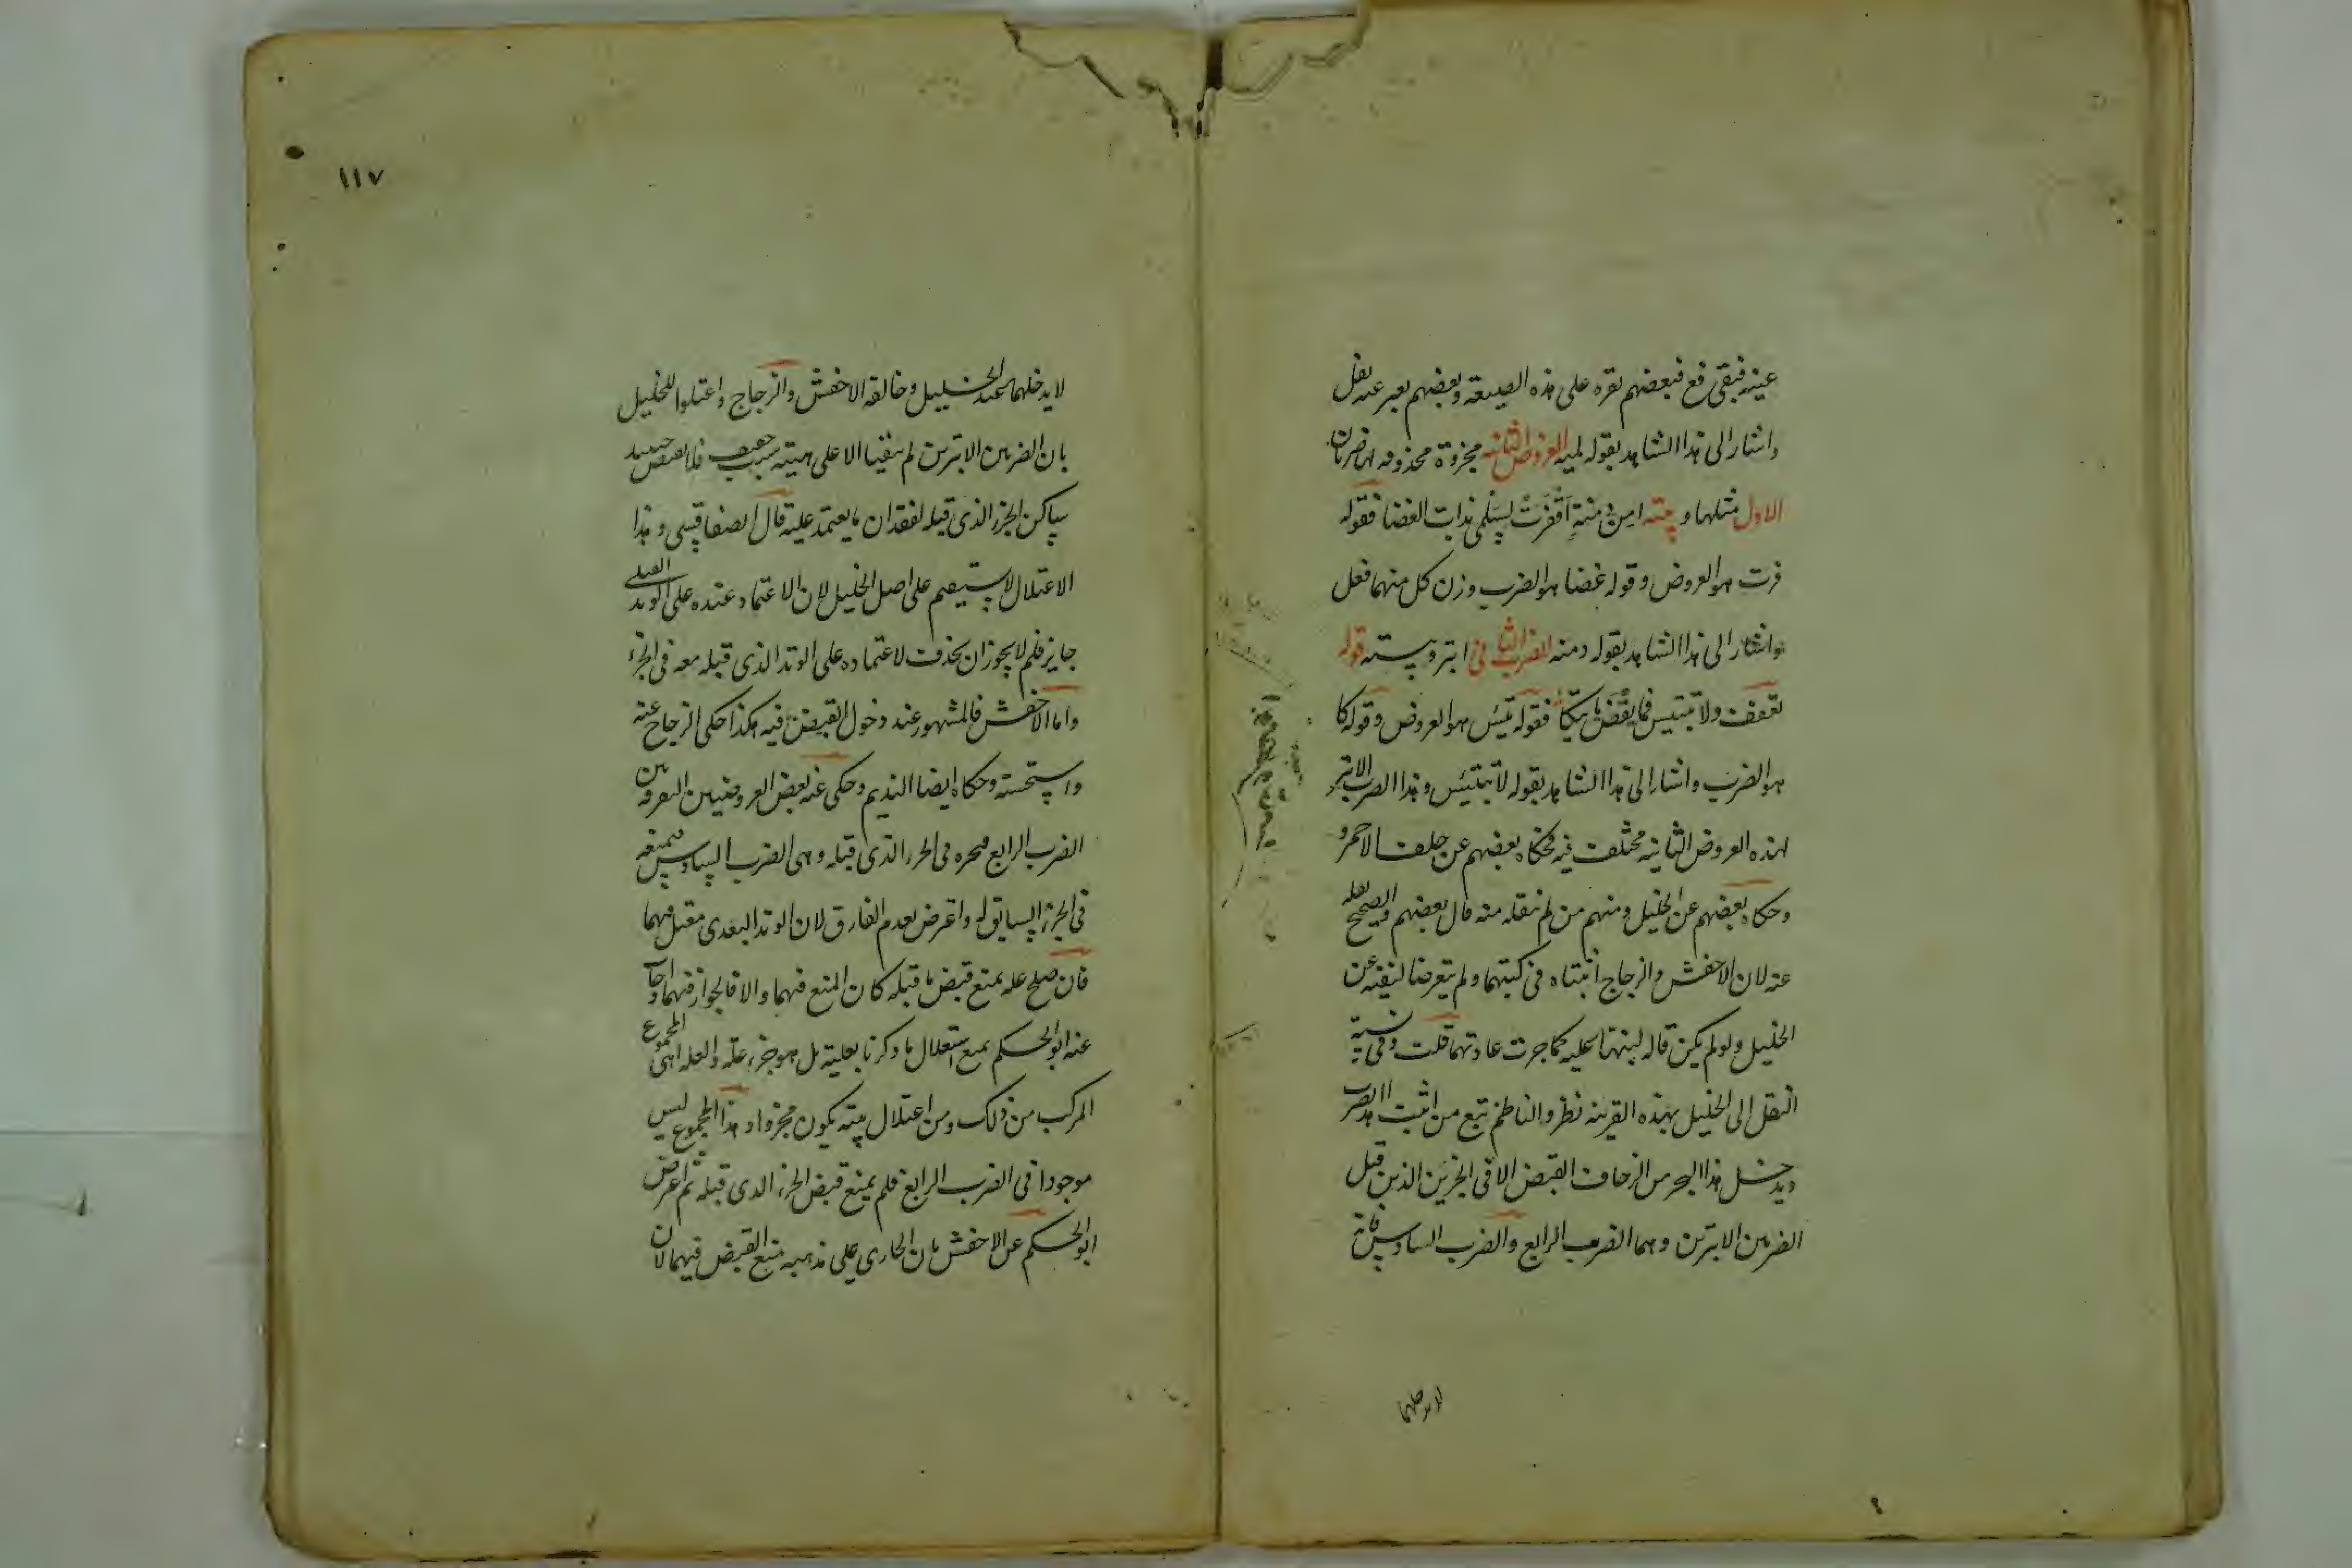 عينه فيبقى فع فبعضهم يقره على هذه الصيغة وبعضهم يعبر عنه بفل
واشار الى هذا الشاهد بقوله لميه العروض الثانيه مجزوة محذوفه لها ضربان
الاول مثلها وبيته امن دمنة اقفرت لسلمى بذات الغضا فقوله
فرت هو العروض وقوله غضا هو الضرب وزن كل منهما فعل
واشار الى هذا الشاهد بقوله دمنه الضرب الثانى ابتر وبيته قوله
تعفف ولا تبتيس فما يقض ياتيكا فقوله تيس هو العروض وقوله كا
هو الضرب واشار الى هذا الشاهد بقوله لا تبتئس وهذا الضرب الابتر
لهذه العروض الثانيه مختلف فيه فحكاه بعضهم عن خلف الاحمر و
وحكاه بعضهم عن الخليل ومنهم من لم ينقله منه قال بعضهم والصحيح نقله
عنه لان الاخفش والزجاج اثبتاه فى كتبهما ولم يتعرضا لنفيه عن
الخليل ولو لم يكن قاله لنبها عليه كما جرت عادتهما قلت وفى نسبة
النقل الى الخليل بهذه القرينه نظر والناظم تبع من اثبت هذا الضرب
ويدخل هذا البحر من الزحاف القبض الا فى الجزين الذين قبل
الضربين الابترين وهما الضرب الرابع والضرب السادس فانه
لا يدخلهما
١١٧
لا يدخلهما عند الخليل وخالفه الاخفش والزجاج واعتلوا للخليل
بان الضربين الابترين لم يبقيا الا على هيئة سبب خفيف فلا يقبض حينيذ
ساكن الجزء الذى قبله لفقدان ما يعتمد عليه قال الصفاقسى وهذا
الاعتلال لا يستقيم على اصل الخليل لان الاعتماد عنده على الوتد القبلى
جايز فلم لا يجوز ان يحذف لاعتماده على الوتد الذى قبله معه فى الجزء
واما الاخفش فالمشهور عند دخول القبض فيه هكذا حكى الزجاج عنه
واستحسنه وحكاه ايضا النديم وحكى عنه بعض العروضيين التفرقه بين
الضرب الرابع فيجيزه فى الجزء الذى قبله وهى الضرب السادس فيمنعه
فى الجزء السابق له واعترض بعدم الفارق لان الوتد البعدى معتل فيهما
فان صلح عله لمنع قبض ما قبله كان المنع فيهما والا فالجواز فيهما واجاب
عنه ابو الحكم بمنع استقلال ما ذكرنا بعليته بل هو جزء علة والعله هى المجموع
المركب من ذلك ومن اعتلال بيته بكون مجزوا وهذا المجموع ليس
موجودا فى الضرب الرابع فلم يمنع قبض الجزء الذى قبله ثم اعترض
ابو الحكم عن الاخفش بان الجارى على مذهبه منع القبض فيهما لان